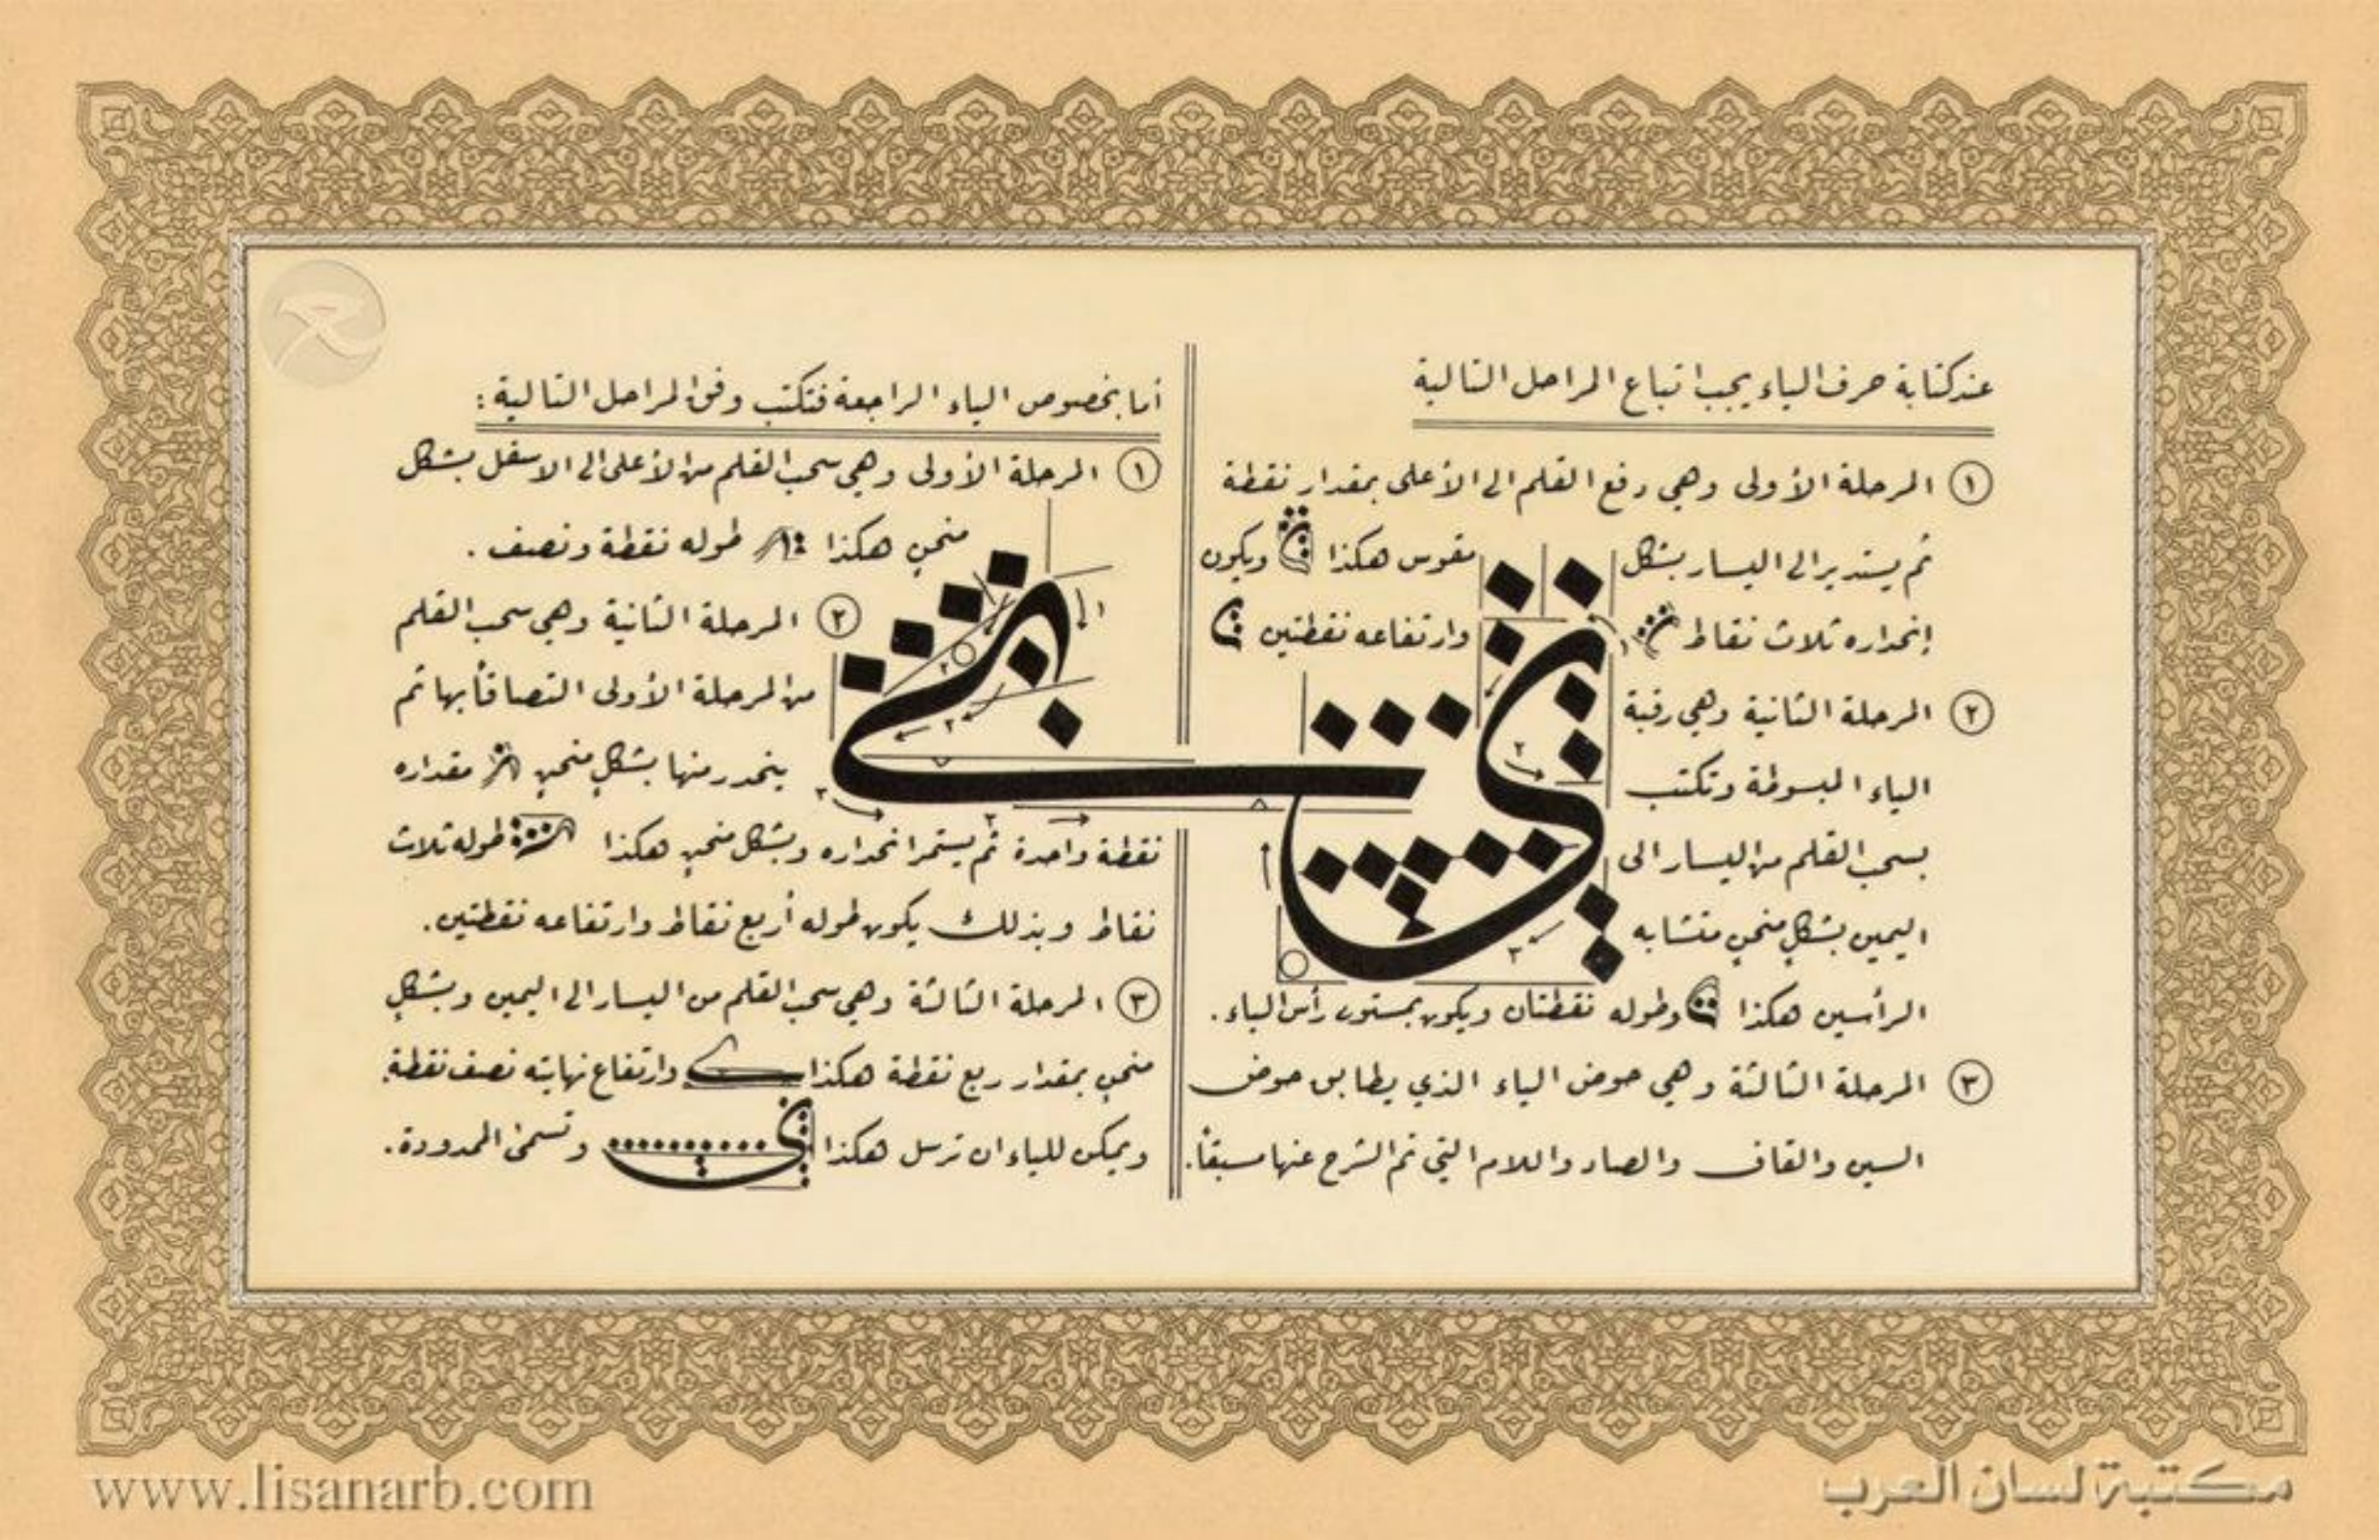 عند كتابة حرف الياء يجب اتباع المراحل التالية
١ المرحلة الأولى وهي رفع القلم الى الأعلى بمقدار نقطة
ثم يستدير الى اليسار بشكل مقوس هكذا ويكون
إنحداره ثلاث نقاط وارتفاعه نقطتين
٢ المرحلة الثانية وهي رقبة
الياء المبسوطة وتكتب
بسحب القلم من اليسار الى
اليمين بشكل منحنٍ متشابه
الرأسين هكذا وطوله نقطتان ويكون بمستوى رأس الياء.
٣ المرحلة الثالثة وهي حوض الياء الذي يطابق حوض
السين والقاف والصاد واللام التي تم الشرح عنها مسبقاً.
أما بخصوص الياء الراجعة فتكتب وفق المراحل التالية:
١ المرحلة الأولى وهي سحب القلم من الأعلى الى الاسفل بشكل
منحنٍ هكذا طوله نقطة ونصف.
٢ المرحلة الثانية وهي سحب القلم
من المرحلة الأولى التصاقاً بها ثم
ينحدر منها بشكلٍ منحنٍ مقداره
نقطة واحدة ثم يستمر انحداره وبشكل منحنٍ هكذا طوله ثلاث
نقاط وبذلك يكون طوله أربع نقاط وارتفاعه نقطتين.
٣ المرحلة الثالثة وهي سحب القلم من اليسار الى اليمين وبشكلٍ
منحنٍ بمقدار ربع نقطة هكذا وارتفاع نهايته نصف نقطة.
ويمكن للياء ان ترسل هكذا وتسمى الممدودة.
١
٢
٣
١
٢
٢
٣
٣
www.lisanarb.com
مكتبة لسان العرب